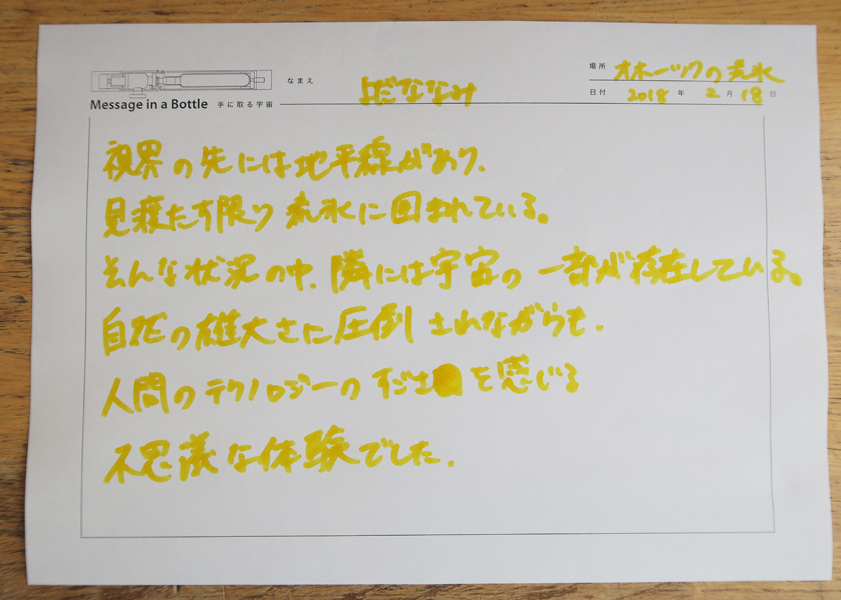 場所 オホーツクの流氷
なまえ よだななみ
Message in a Bottle 手に取る宇宙
日付 2018 年 2 月 18 日
視界の先には地平線があり、
見渡す限り 流氷に囲まれている。
そんな状況の中、隣には宇宙の 一部が存在している。
自然の雄大さに圧倒 されながらも、
人間のテクノロジーの すごさ を感じる
不思議な体験でした。